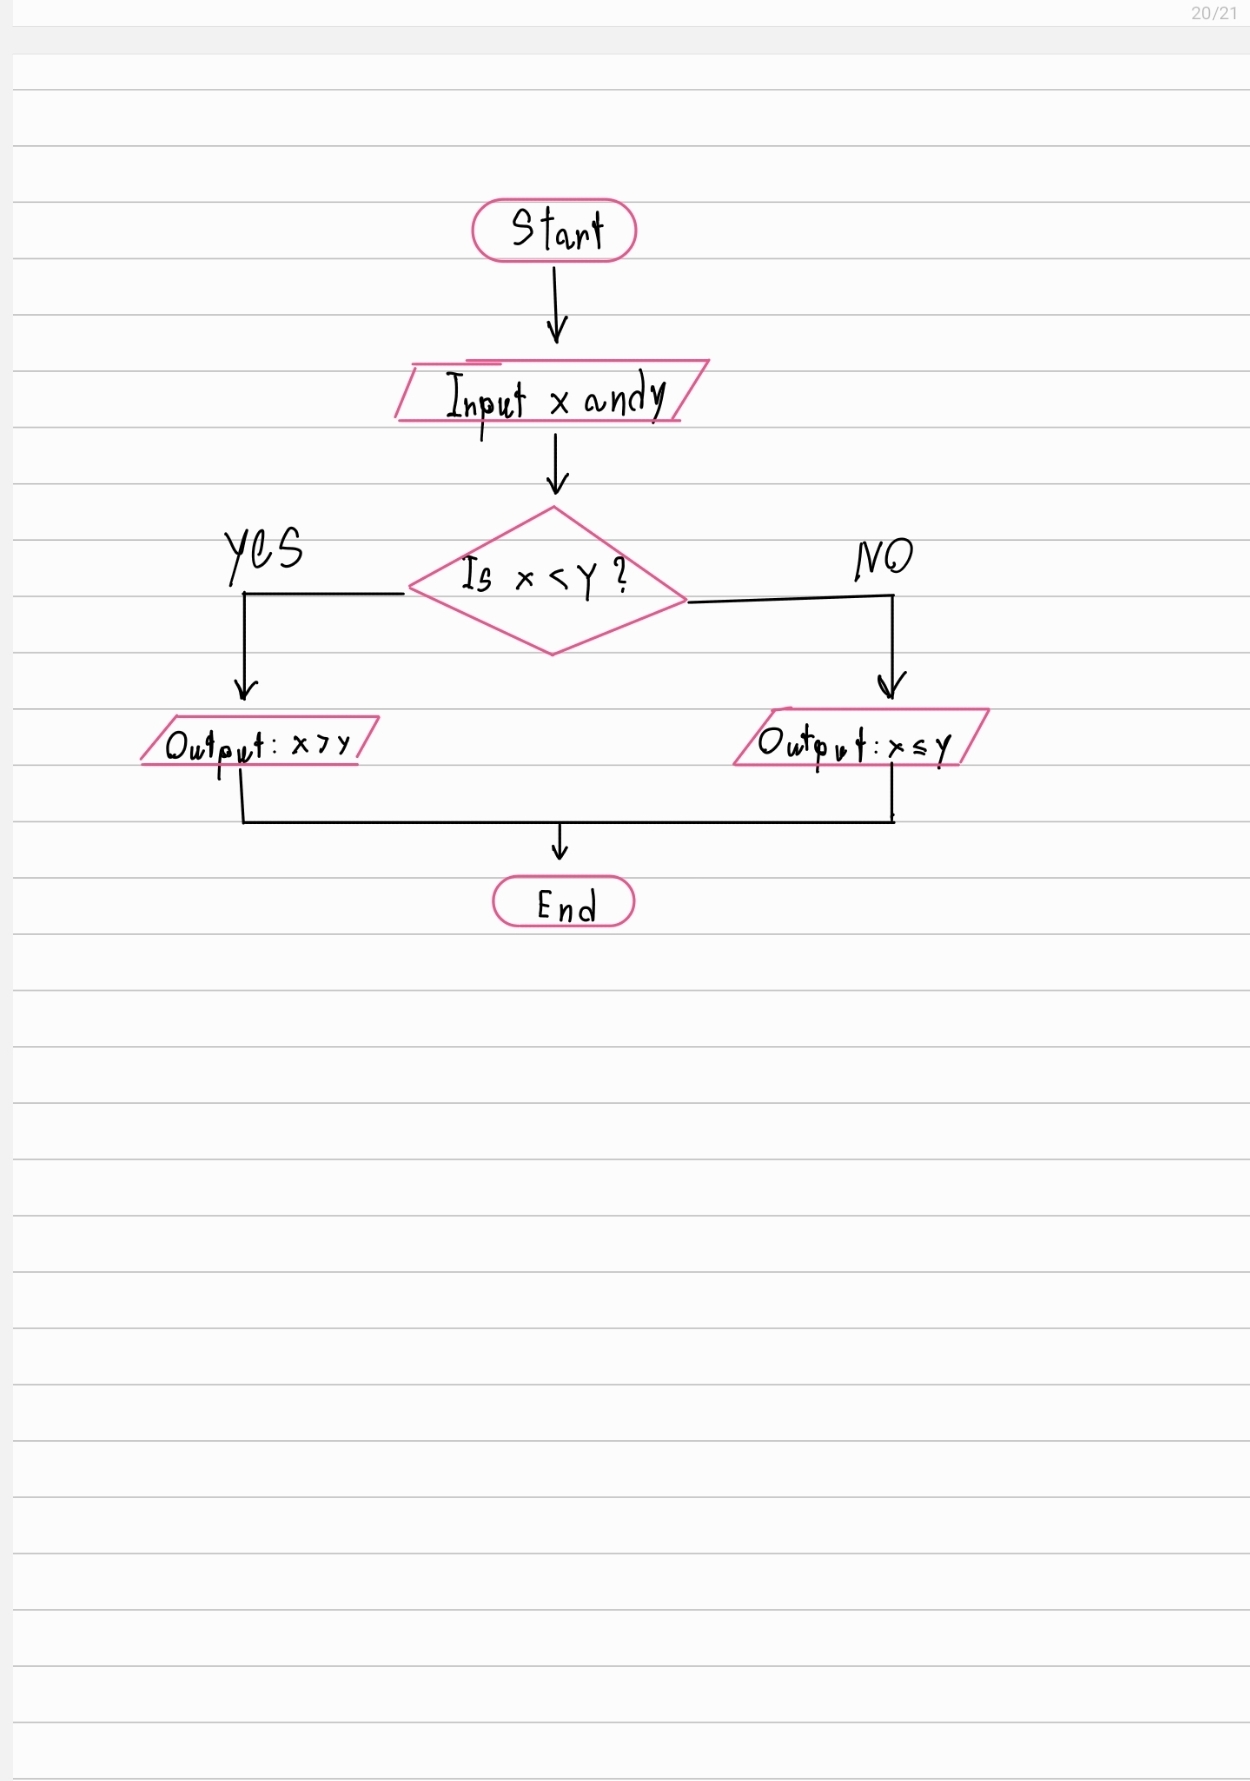 20/21
Start
Input x and y
Is x < y ?
YES
NO
Output: x > y
Output: x ≤ y
End